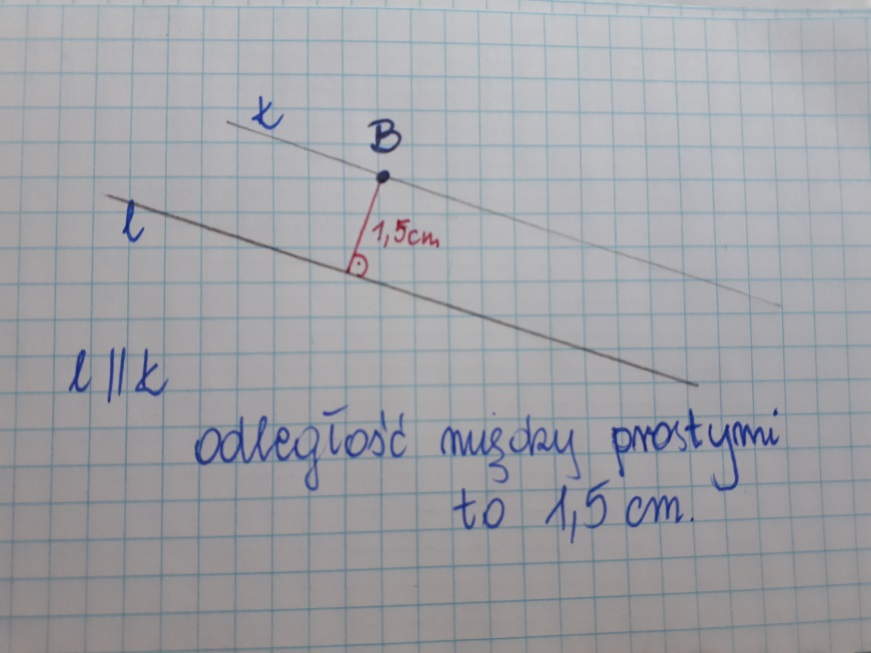 k
B
l
1,5cm
l || k
odległość między prostymi
to 1,5 cm.